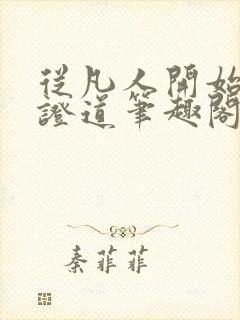 從凡人開始
證道筆趣閣
秦菲菲